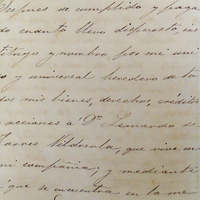 Despues de cumplido y paga
do cuanto llevo dispuesto, ins
tituyo y nombro por mi uni
co y universal heredero de to
dos mis bienes, derechos, créditos
y acciones a Dn Leonardo de
Torres Vildosola, que vive en
mi compañia; y mediante
a que se encuentra en la me